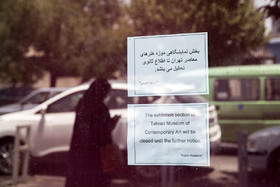 بخش نمایشگاهی موزه هنرهای
معاصر تهران تا اطلاع ثانوی
تعطیل می باشد.
The exhibition section of
Tehran Museum of
Contemporary Art will be
closed until the further notice.
Public Relations